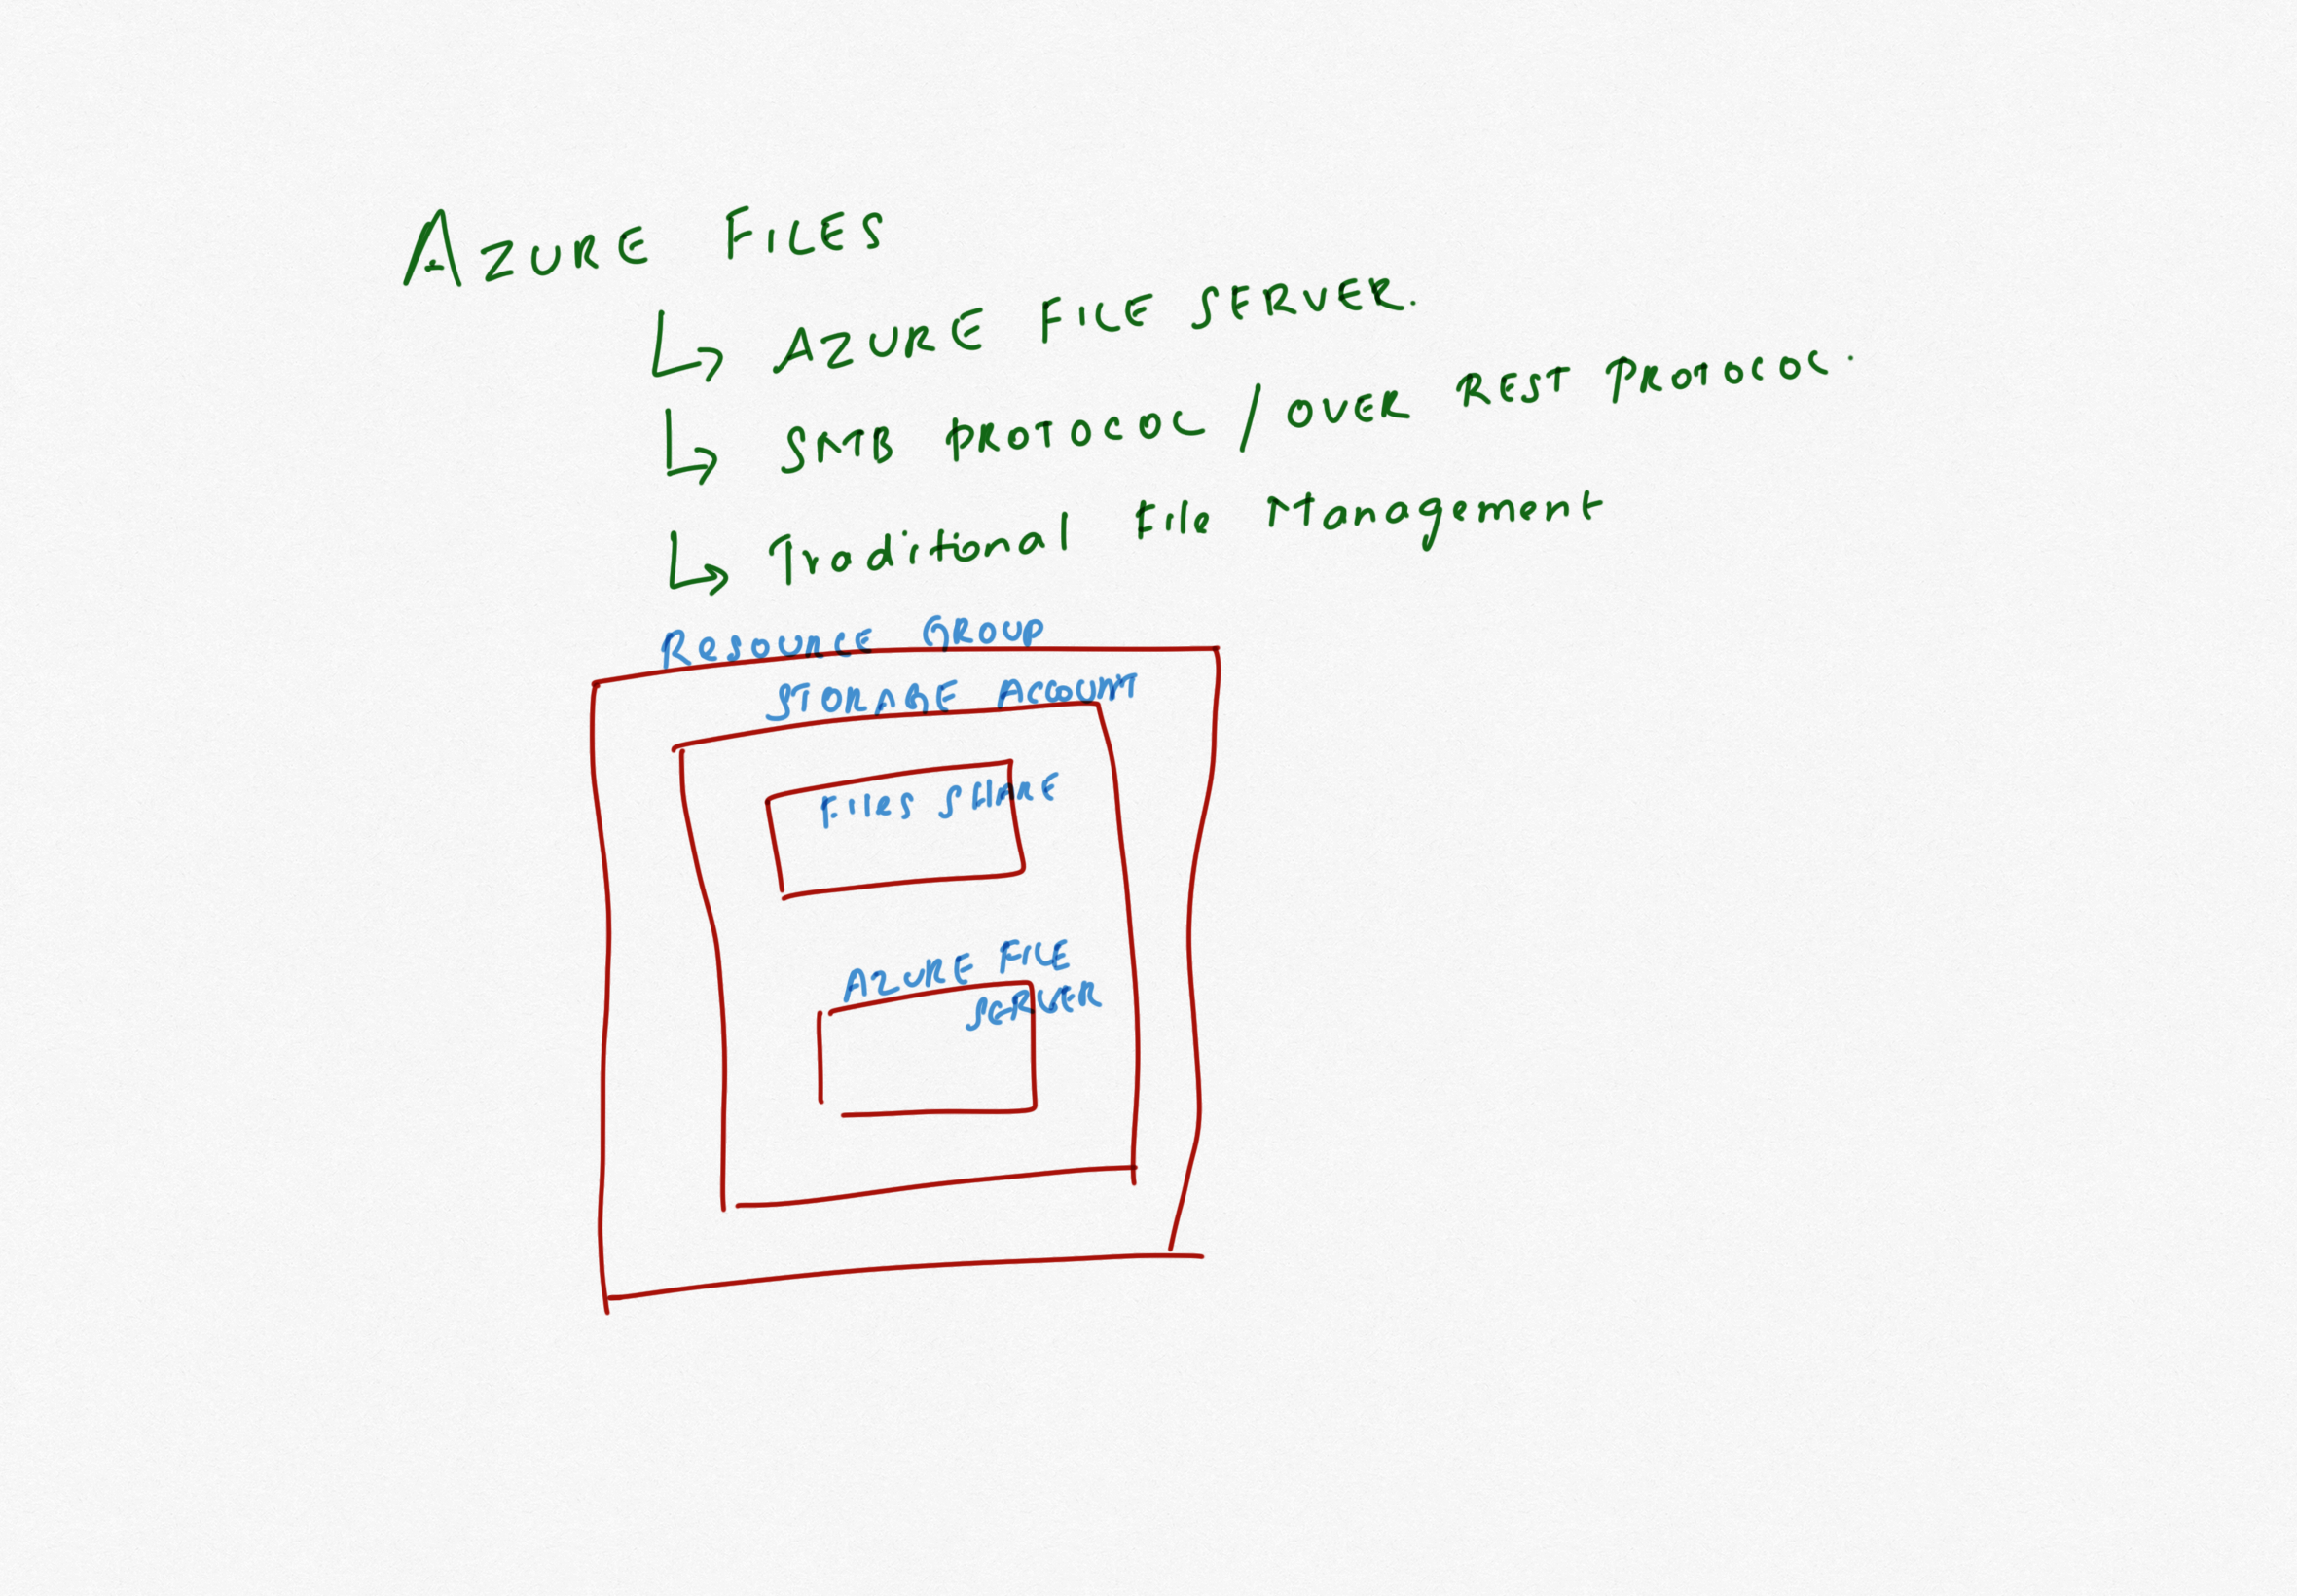 AZURE FILES
AZURE FILE SERVER.
SMB PROTOCOL / OVER REST PROTOCOL.
Traditional File Management
RESOURCE GROUP
STORAGE ACCOUNT
FILES SHARE
AZURE FILE
SERVER